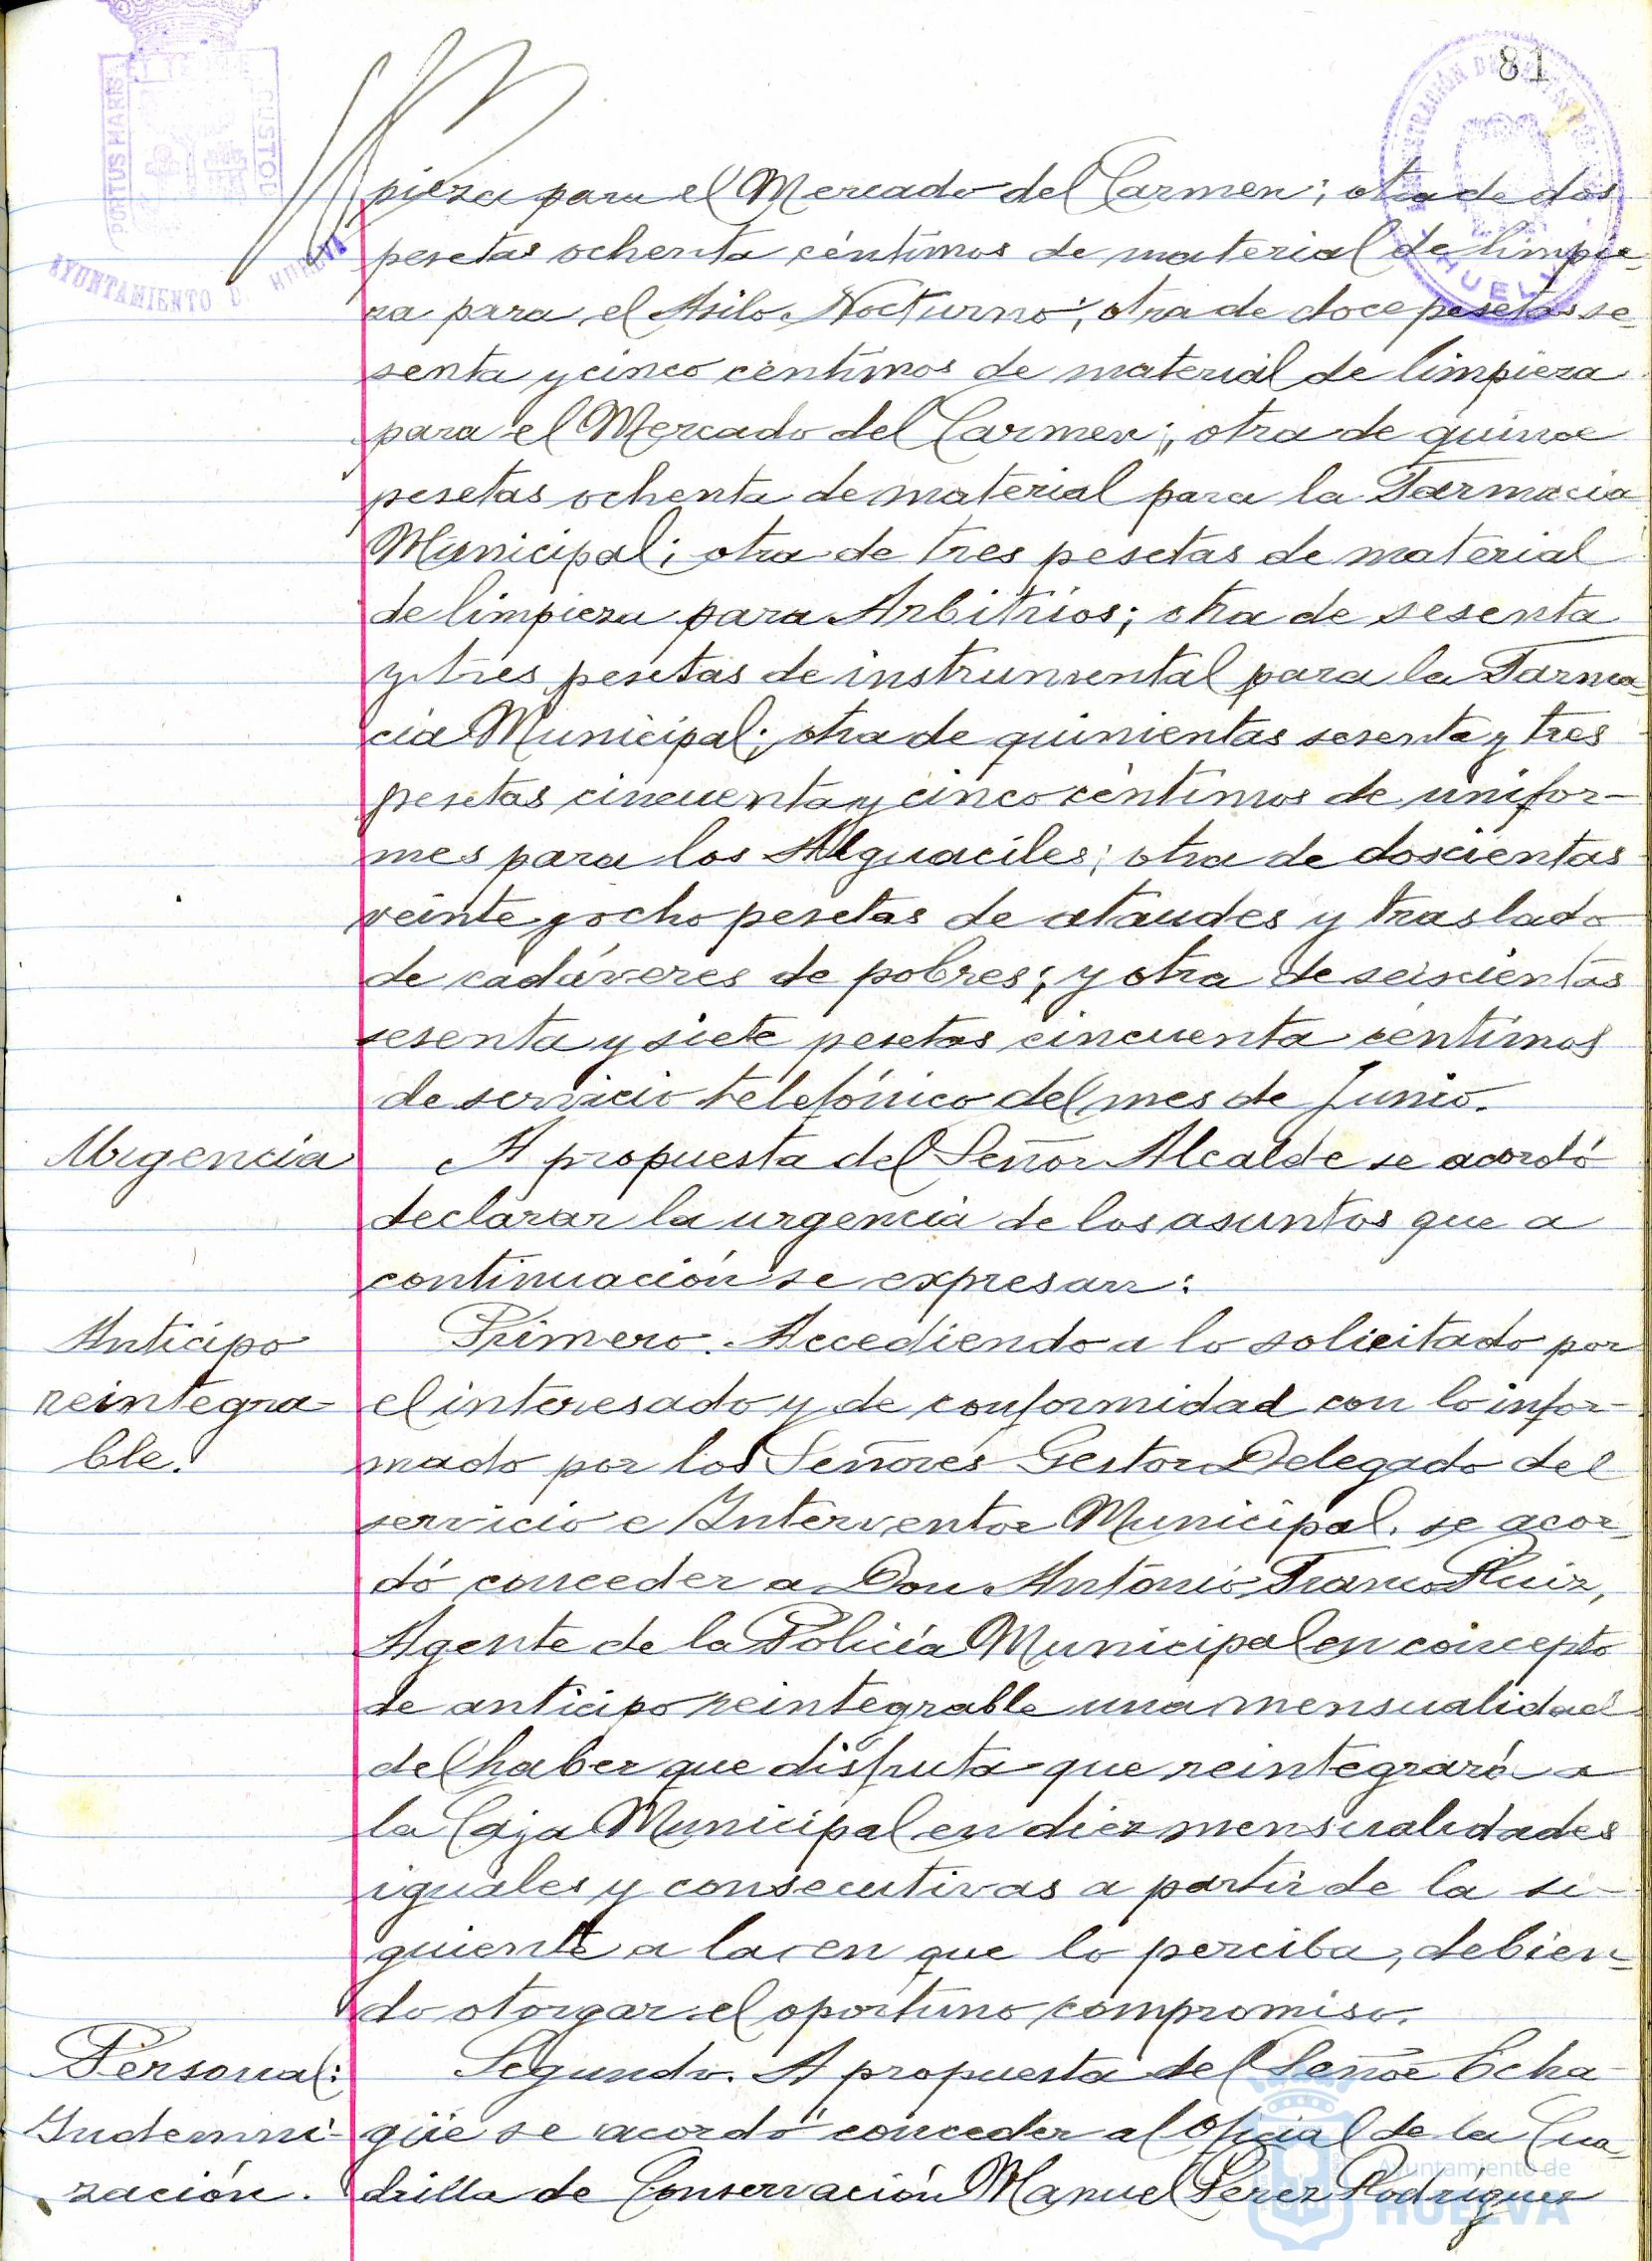 81
PORTUS MARIS
CUSTODI
AYUNTAMIENTO D. HUELVA
HUELVA
pieza para el Mercado del Carmen; otra de dos
pesetas ochenta céntimos de material de limpie-
za para el Asilo Nocturno; otra de doce pesetas se-
senta y cinco céntimos de material de limpieza
para el Mercado del Carmen; otra de quince
pesetas ochenta de material para la Farmacia
Municipal; otra de tres pesetas de material
de limpieza para Arbitrios; otra de sesenta
y tres pesetas de instrumental para la Farma-
cia Municipal; otra de quinientas sesenta y tres
pesetas cincuenta y cinco céntimos de unifor-
mes para los Alguaciles; otra de doscientas
veinte y ocho pesetas de ataudes y traslado
de cadáveres de pobres; y otra de seiscientas
sesenta y siete pesetas cincuenta céntimos
de servicio telefónico del mes de Junio.
Urgencia
A propuesta del Señor Alcalde se acordó
declarar la urgencia de los asuntos que a
continuación se expresan:
Anticipo
reintegra-
ble.
Primero. Accediendo a lo solicitado por
el interesado y de conformidad con lo infor-
mado por los Señores Gestor Delegado del
servicio e Interventor Municipal, se acor-
dó conceder a Don Antonio Franco Ruiz,
Agente de la Policía Municipal en concepto
de anticipo reintegrable una mensualidad
del haber que disfruta que reintegrará a
la Caja Municipal en diez mensualidades
iguales y consecutivas a partir de la si-
guiente a la en que lo perciba, debien-
do otorgar el oportuno compromiso.
Personal:
Indemni-
zación.
Segundo. A propuesta del Señor Echa-
güe se acordó conceder al Oficial de la Cua-
drilla de Conservación Manuel Perez Rodríguez
Ayuntamiento de
HUELVA